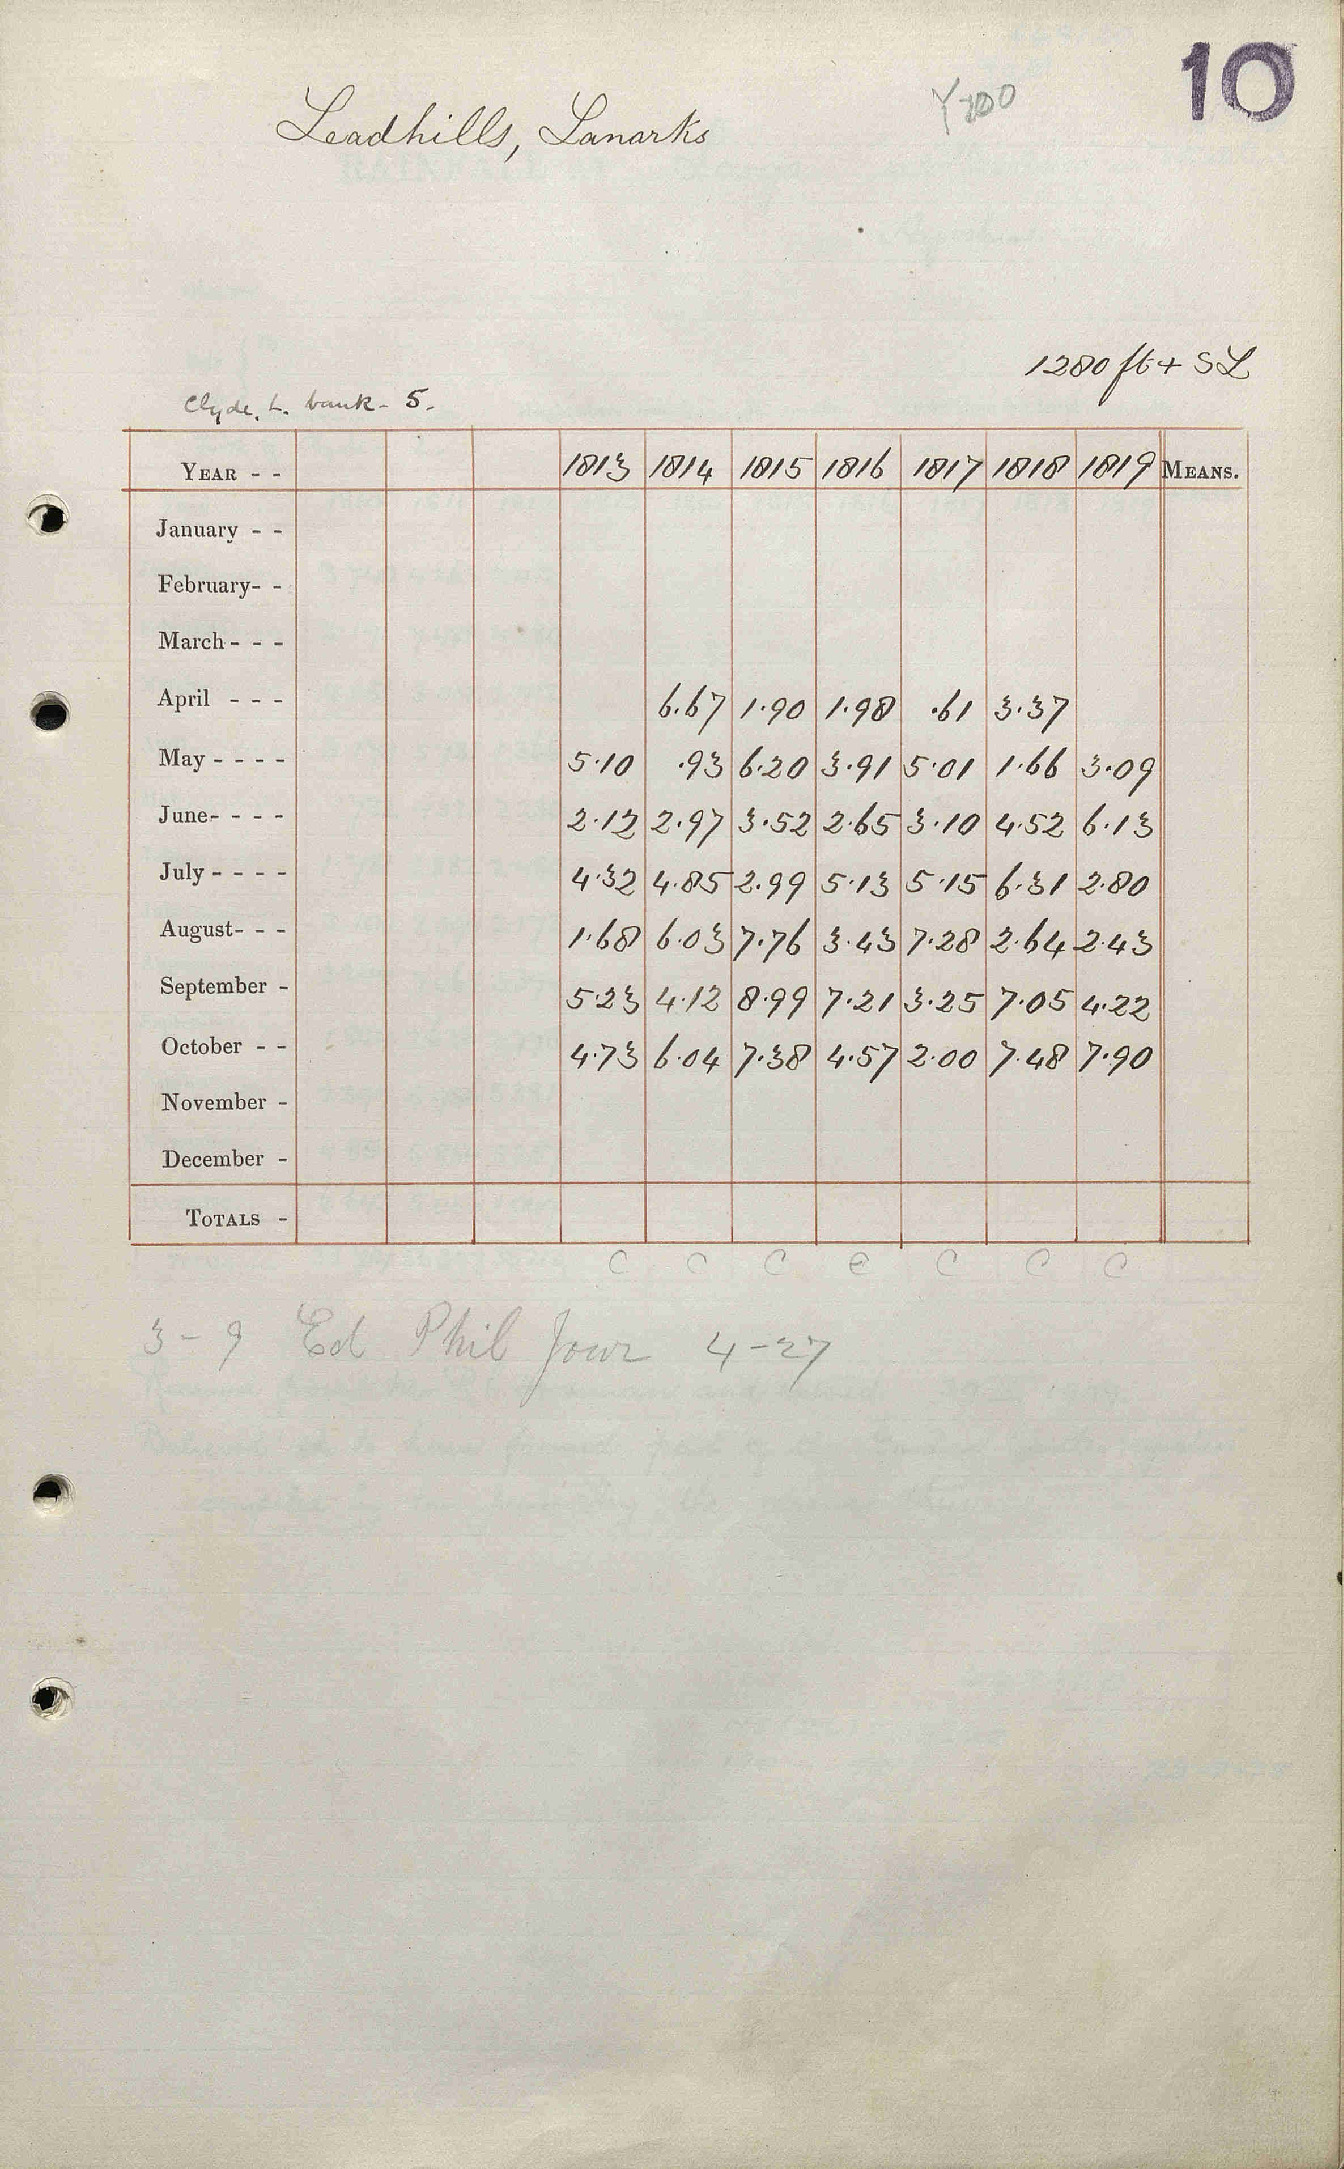 10
Leadhills, Lanarks
1280 ft + SL
Clyde, L. bank - 5.
YEAR - - 1813 1814 1815 1816 1817 1818 1819 MEANS.
January - -
February - -
March - - -
April - - - 6.67 1.90 1.98 .61 3.37
May - - - - 5.10 .93 6.20 3.91 5.01 1.66 3.09
June - - - - 2.12 2.97 3.52 2.65 3.10 4.52 6.13
July - - - - 4.32 4.85 2.99 5.13 5.15 6.31 2.80
August - - - 1.68 6.03 7.76 3.43 7.28 2.64 2.43
September - 5.23 4.12 8.99 7.21 3.25 7.05 4.22
October - - 4.73 6.04 7.38 4.57 2.00 7.48 7.90
November -
December -
TOTALS -
C C C C C C
3-9 Ed Phil Jour 4-27